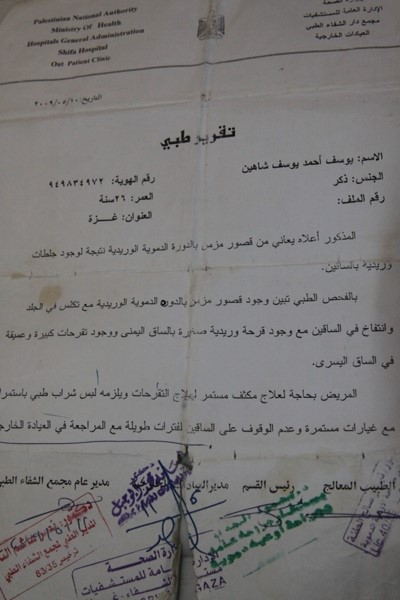 Palestinian National Authority
Ministry Of Health
Hospitals General Administration
Shifa Hospital
Out Patient Clinic
الإدارة العامة للمستشفيات
مجمع دار الشفاء الطبي
العيادات الخارجية
التاريخ: ٢٠٠٩/٠٥/١٠
تقرير طبي
الاسم: يوسف أحمد يوسف شاهين
رقم الهوية: ٩٤٩٨٣٤٩٧٢
الجنس: ذكر
العمر: ٢٦سنة
رقم الملف:
العنوان: غزة
المذكور أعلاه يعاني من قصور مزمن بالدورة الدموية الوريدية نتيجة لوجود جلطات
وريدية بالساقين.
بالفحص الطبي تبين وجود قصور مزمن بالدوره الدموية الوريدية مع تكلس في الجلد
وانتفاخ في الساقين مع وجود قرحة وريدية صغيرة بالساق اليمنى ووجود تقرحات كبيرة وعميقة
في الساق اليسرى.
المريض بحاجة لعلاج مكثف مستمر لعلاج التقرحات ويلزمه لبس شراب طبي باستمرا
مع غيارات مستمرة وعدم الوقوف على الساقين لفترات طويلة مع المراجعة في العيادة الخارج
الطبيب المعالج
رئيس القسم
مدير
مدير عام مجمع الشفاء الط
83/35
وزارة الصحة
GAZA